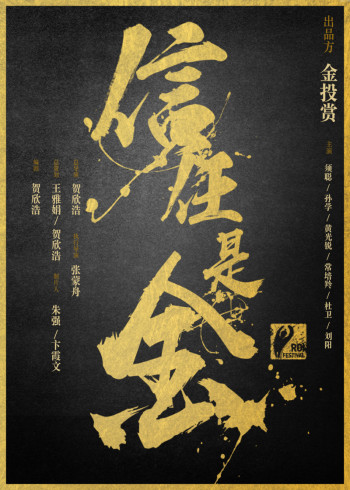 出品方
金投赏
主演
须聪/孙学/黄光锐/常培羚/杜卫/刘阳
信任是金
ROI
FESTIVAL
贺欣浩
张蒙舟
王雅娟/贺欣浩
制片人
朱强/卞霞文
编剧
贺欣浩